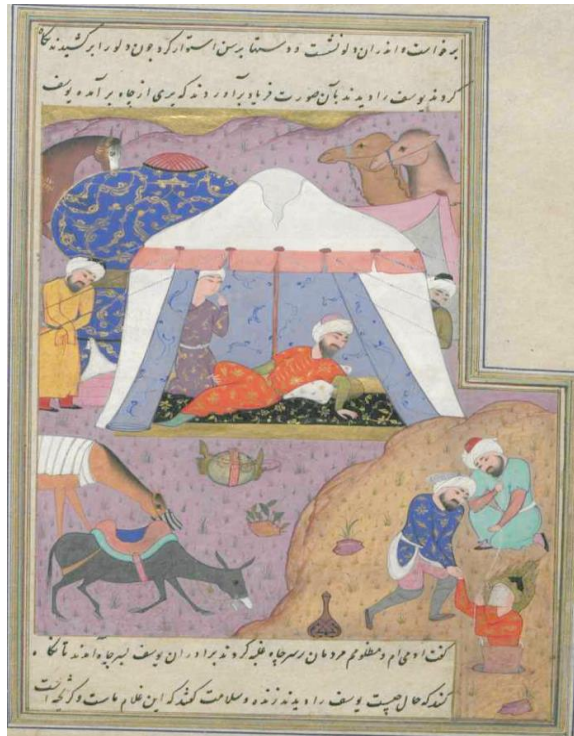 برخواست و اندران دلو نشست و دستها برسن استوار کرد چون دلو را برکشیدند نگاه
کردند یوسف را دیدند بآن صورت فریاد برآوردند که پری از چاه برآمده یوسف
گفت آدمی ام و مظلومم مردمان برسر چاه غلبه کردند برادران یوسف بسر چاه آمدند تا نگاه
کنند که حال چیست یوسف را دیدند زنده و سلامت گفتند که این غلام ماست و گریخته است